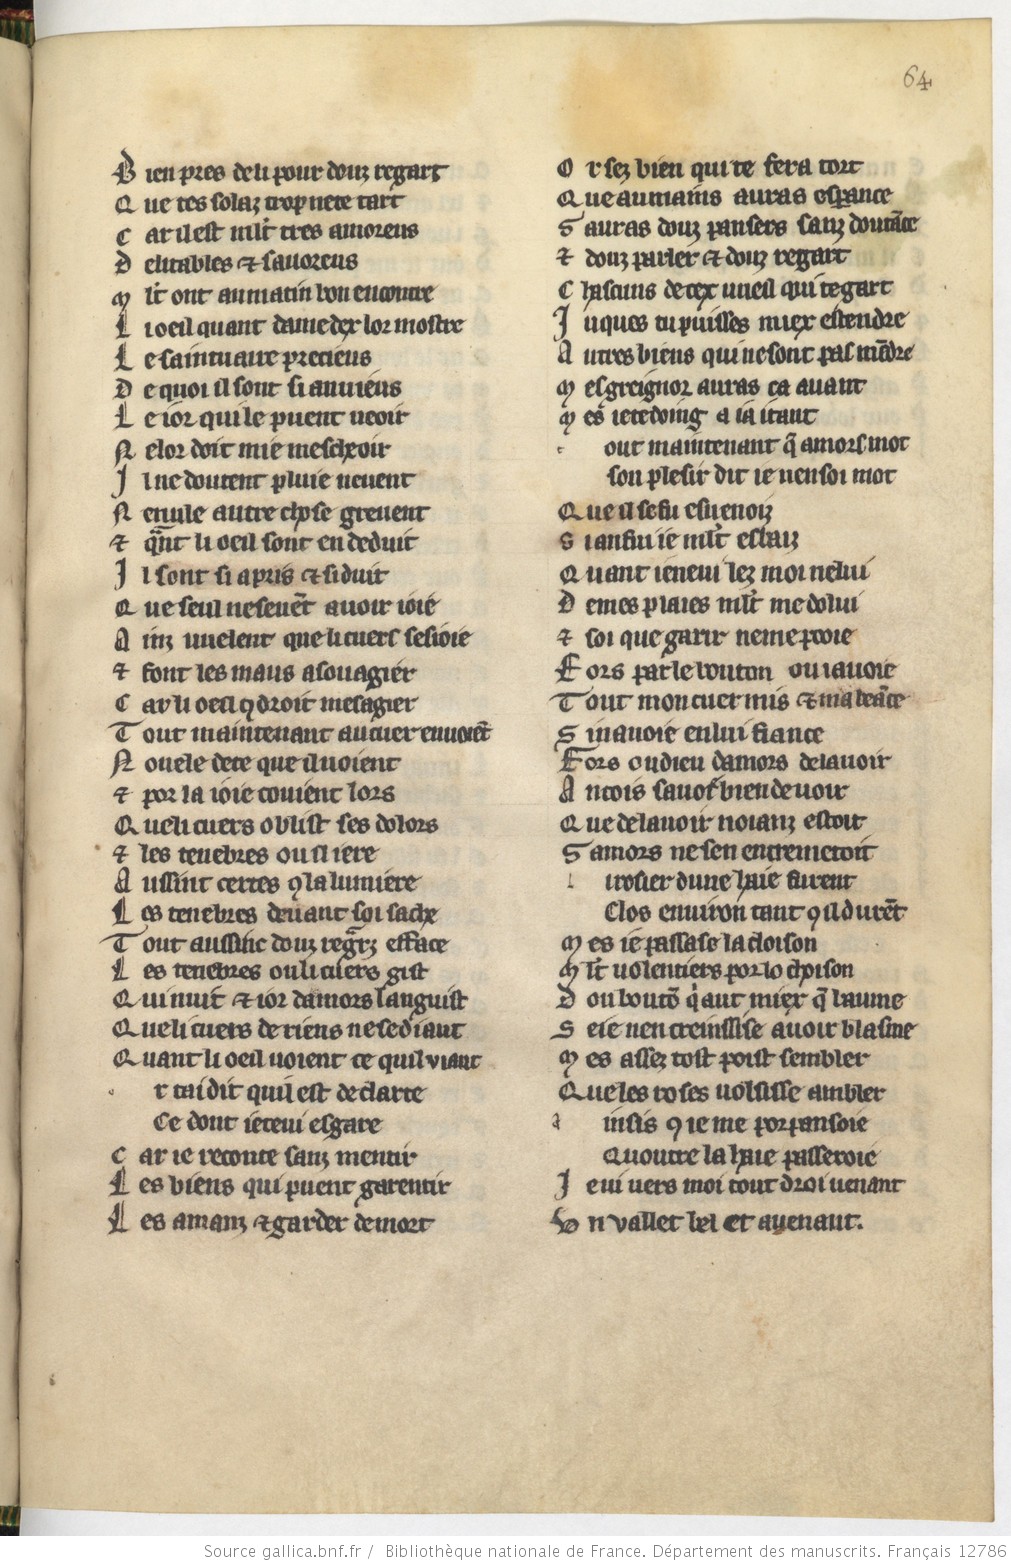 64
B ien pres de li pour douz regart
Q ue tes solaz trop ne te tart
C ar il est mlt tres amoreus
D elitables & savoreus
M lt ont au matin bon encontre
L i oeil quant damedex lor mostre
L e saintuaire precieus
D e quoi il sont si anvieus
L e ior qui le puent veoir
N e lor doit mie mescheoir
I l ne doutent pluie ne vent
N e nule autre chose grevent
& qant li oeil sont en deduit
I l sont si apris & si duit
Q ue seul ne sevent avoir ioie
A inz vuelent que li cuers sesioie
& font les maus asouagier
C ar li oeil 9 droit mesagier
T out maintenant au cuer envoient
N ovele de ce que il voient
& por la ioie covient lors
Q ue li cuers oblist ses dolors
& les tenebres ou il iere
A ussint certes 9 la lumiere
L es tenebres devant soi sache
T out aussinc douz regrz efface
L es tenebres ou li cuers gist
Q ui nuit & ior damors languist
Q ue li cuers de riens ne se diaut
Q uant li oeil voient ce quil viaut
r tai dit quil est declarre
Ce dont ie te vi esgare
C ar ie reconte sanz mentir
L es biens qui puent garentir
L es amanz & garder de mort
O r sez bien qui te fera tort
Q ue au mains auras esperance
S auras douz pansers sanz doutance
& douz parler & douz regart
C hascuns de cex vueil qui te gart
I uques tu puisses miex estendre
A utres biens qui ne sont pas mendre
M es greignor auras ca avant
M es ie te doing a ia itant
out maintenant q amors mot
son plesir dit ie nen soi mot
Q ue il se fu esvenoiz
S i an fui ie mlt esbaiz
Q uant ie ne vi lez moi nelui
D e mes plaies mlt me dolui
& soi que garir ne me porroie
F ors par le bouton ou iavoie
T out mon cuer mis & ma beance
S i navoie en lui fiance
F ors ou dieu damors de lavoir
A ncois savoie bien de voir
Q ue de lavoir noianz estoit
S amors ne sen entremetoit
i rosier dune haie furent
Clos environ tant 9 il durent
M es ie passase la cloison
M lt volentiers por lo choison
D ou bouto qi aut miex q baume
S e ie nen creinssise avoir blasme
M es assez tost poist sembler
Q ue les roses volsisse ambler
insis 9 ie me porpansoie
Q uoutre la haie passeroie
I e vi vers moi tout droi venant
U n vallet bel et avenant.
Source gallica.bnf.fr / Bibliothèque nationale de France. Département des manuscrits. Français 12786